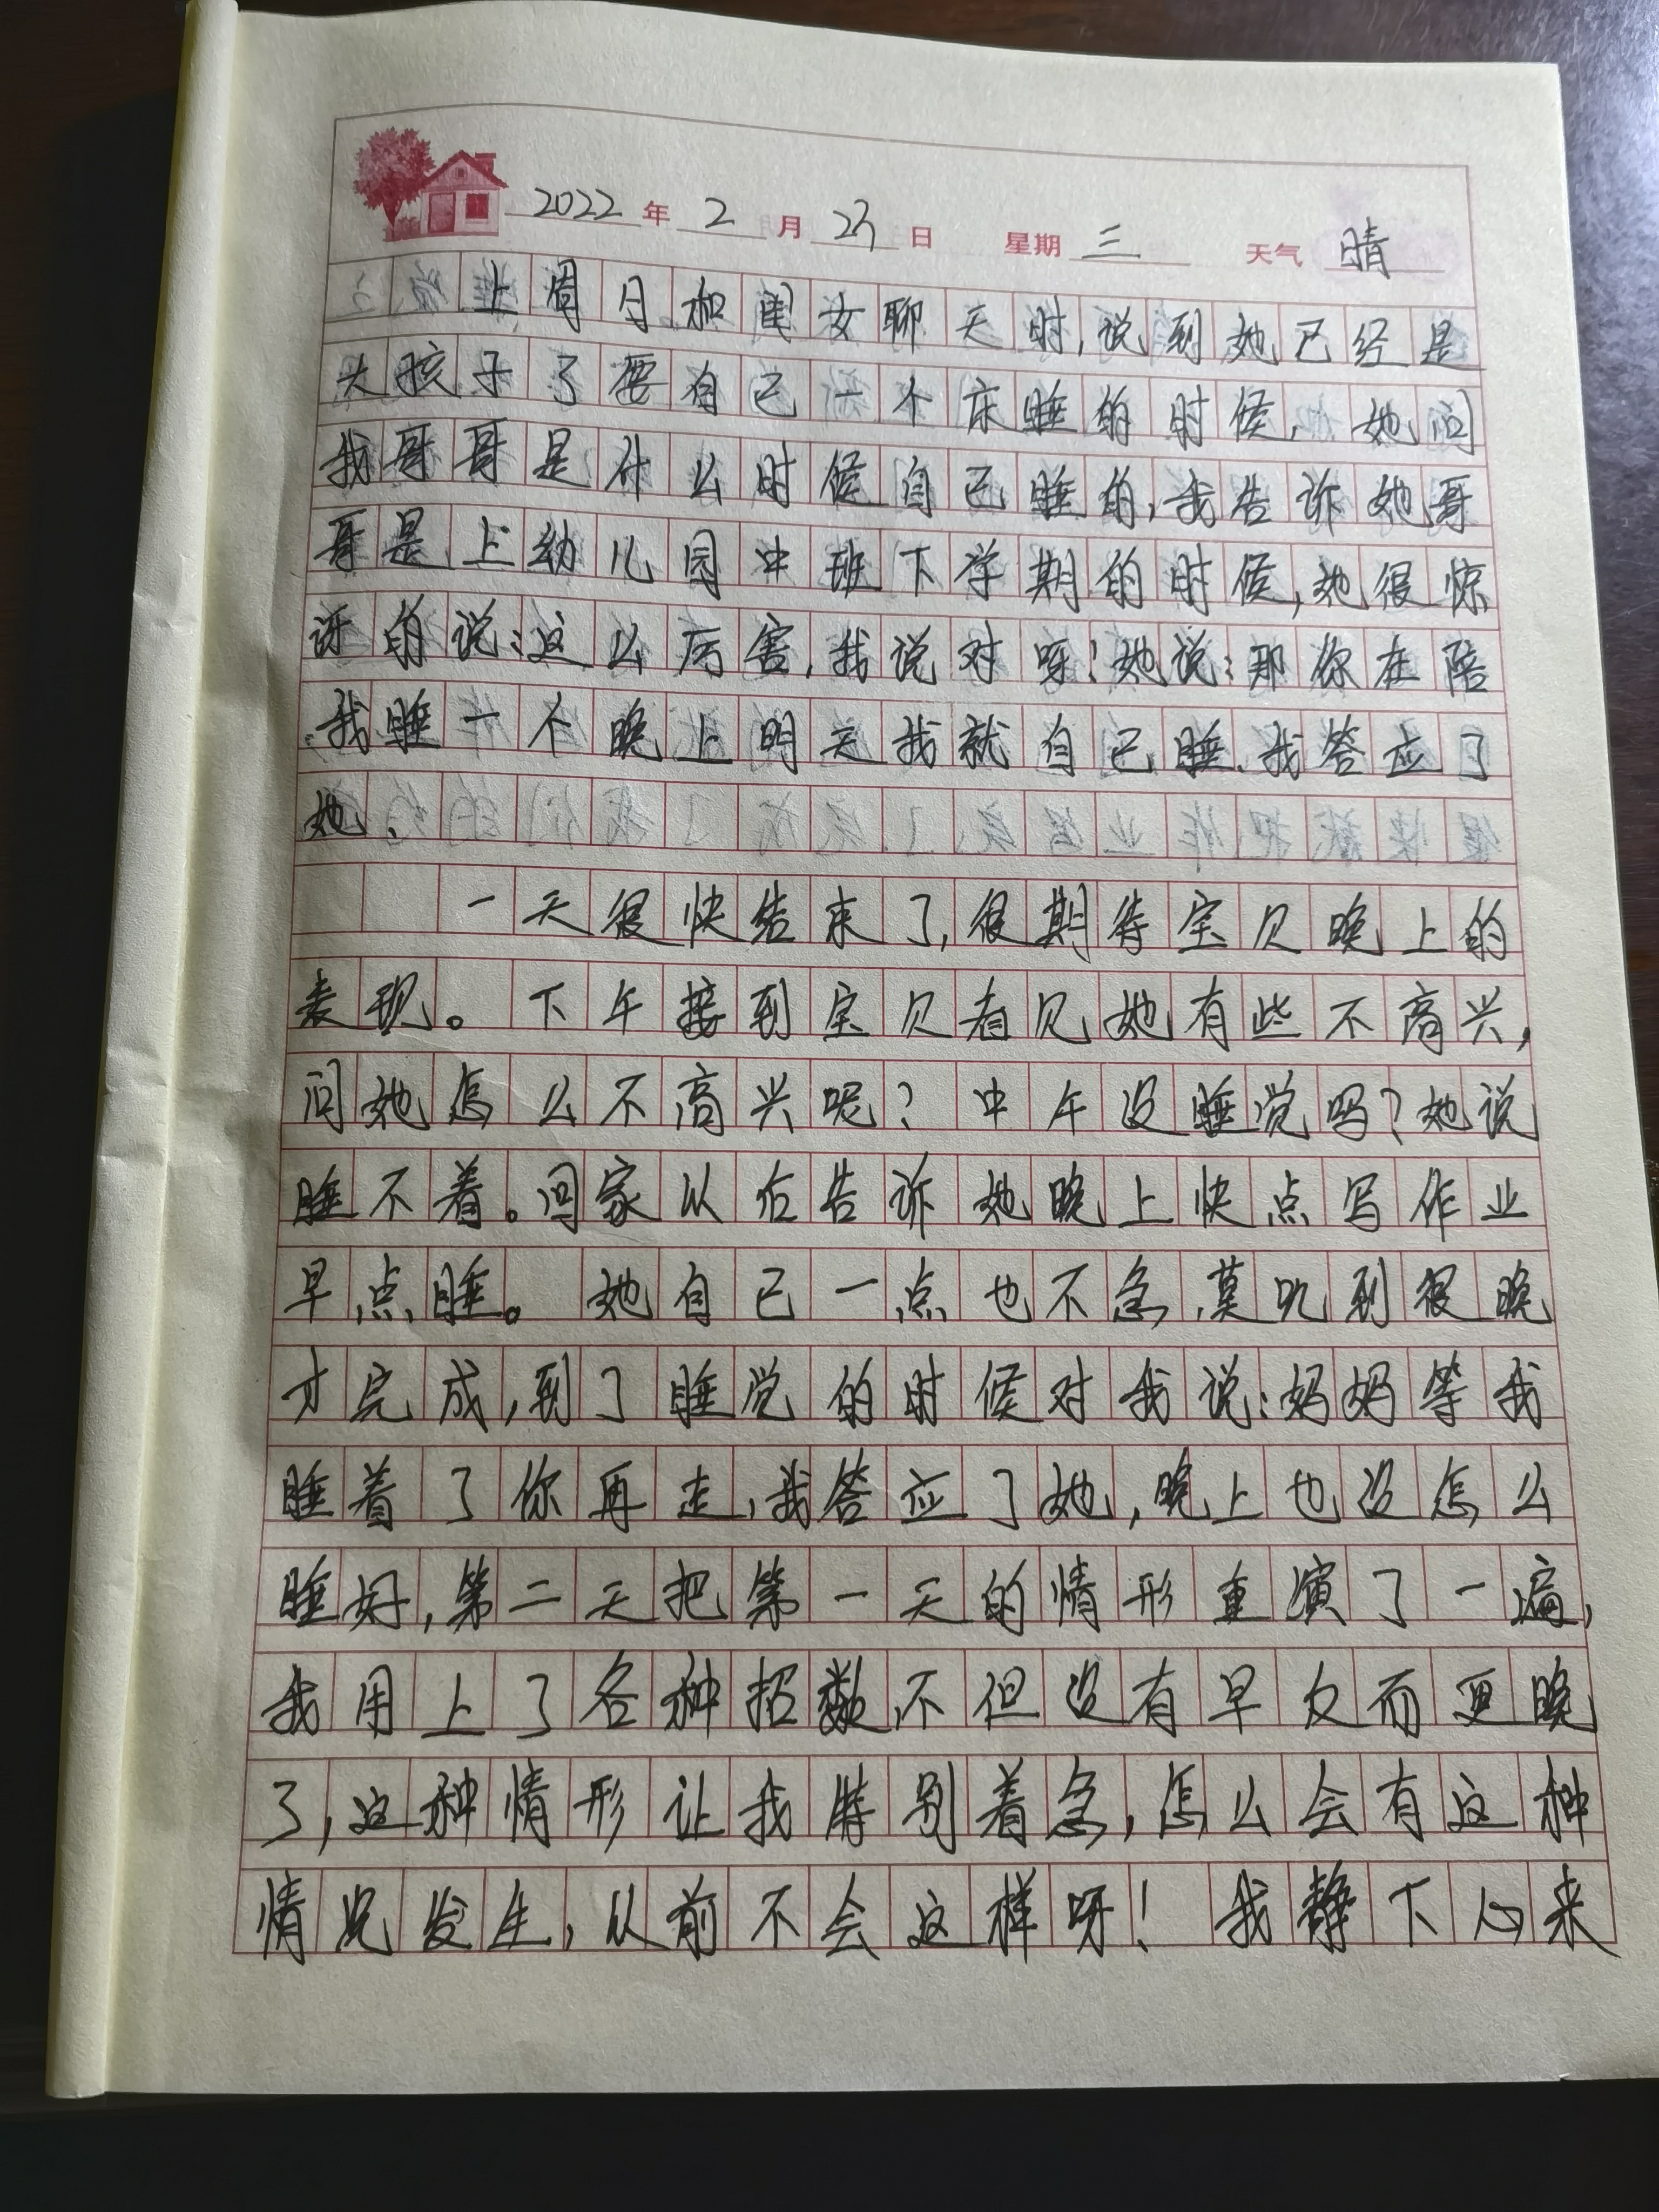 2022年2月23日 星期三 天气晴
上周日和闺女聊天时,说到她已经是
大孩子了要自己一个床睡的时候,她问
我哥哥是什么时候自己睡的,我告诉她哥
哥是上幼儿园中班下学期的时候,她很惊
讶的说:这么厉害,我说对呀!她说:那你在陪
我睡一个晚上明天我就自己睡,我答应了
她.
一天很快结束了,很期待宝贝晚上的
表现。下午接到宝贝看见她有些不高兴,
问她怎么不高兴呢?中午没睡觉吗?她说
睡不着。回家以后告诉她晚上快点写作业
早点睡。她自己一点也不急,莫叽到很晚
才完成,到了睡觉的时候对我说:妈妈等我
睡着了你再走,我答应了她,晚上也没怎么
睡好,第二天把第一天的情形重演了一遍,
我用上了各种招数,不但没有早反而更晚
了,这种情形让我特别着急,怎么会有这种
情况发生,从前不会这样呀!我静下心来